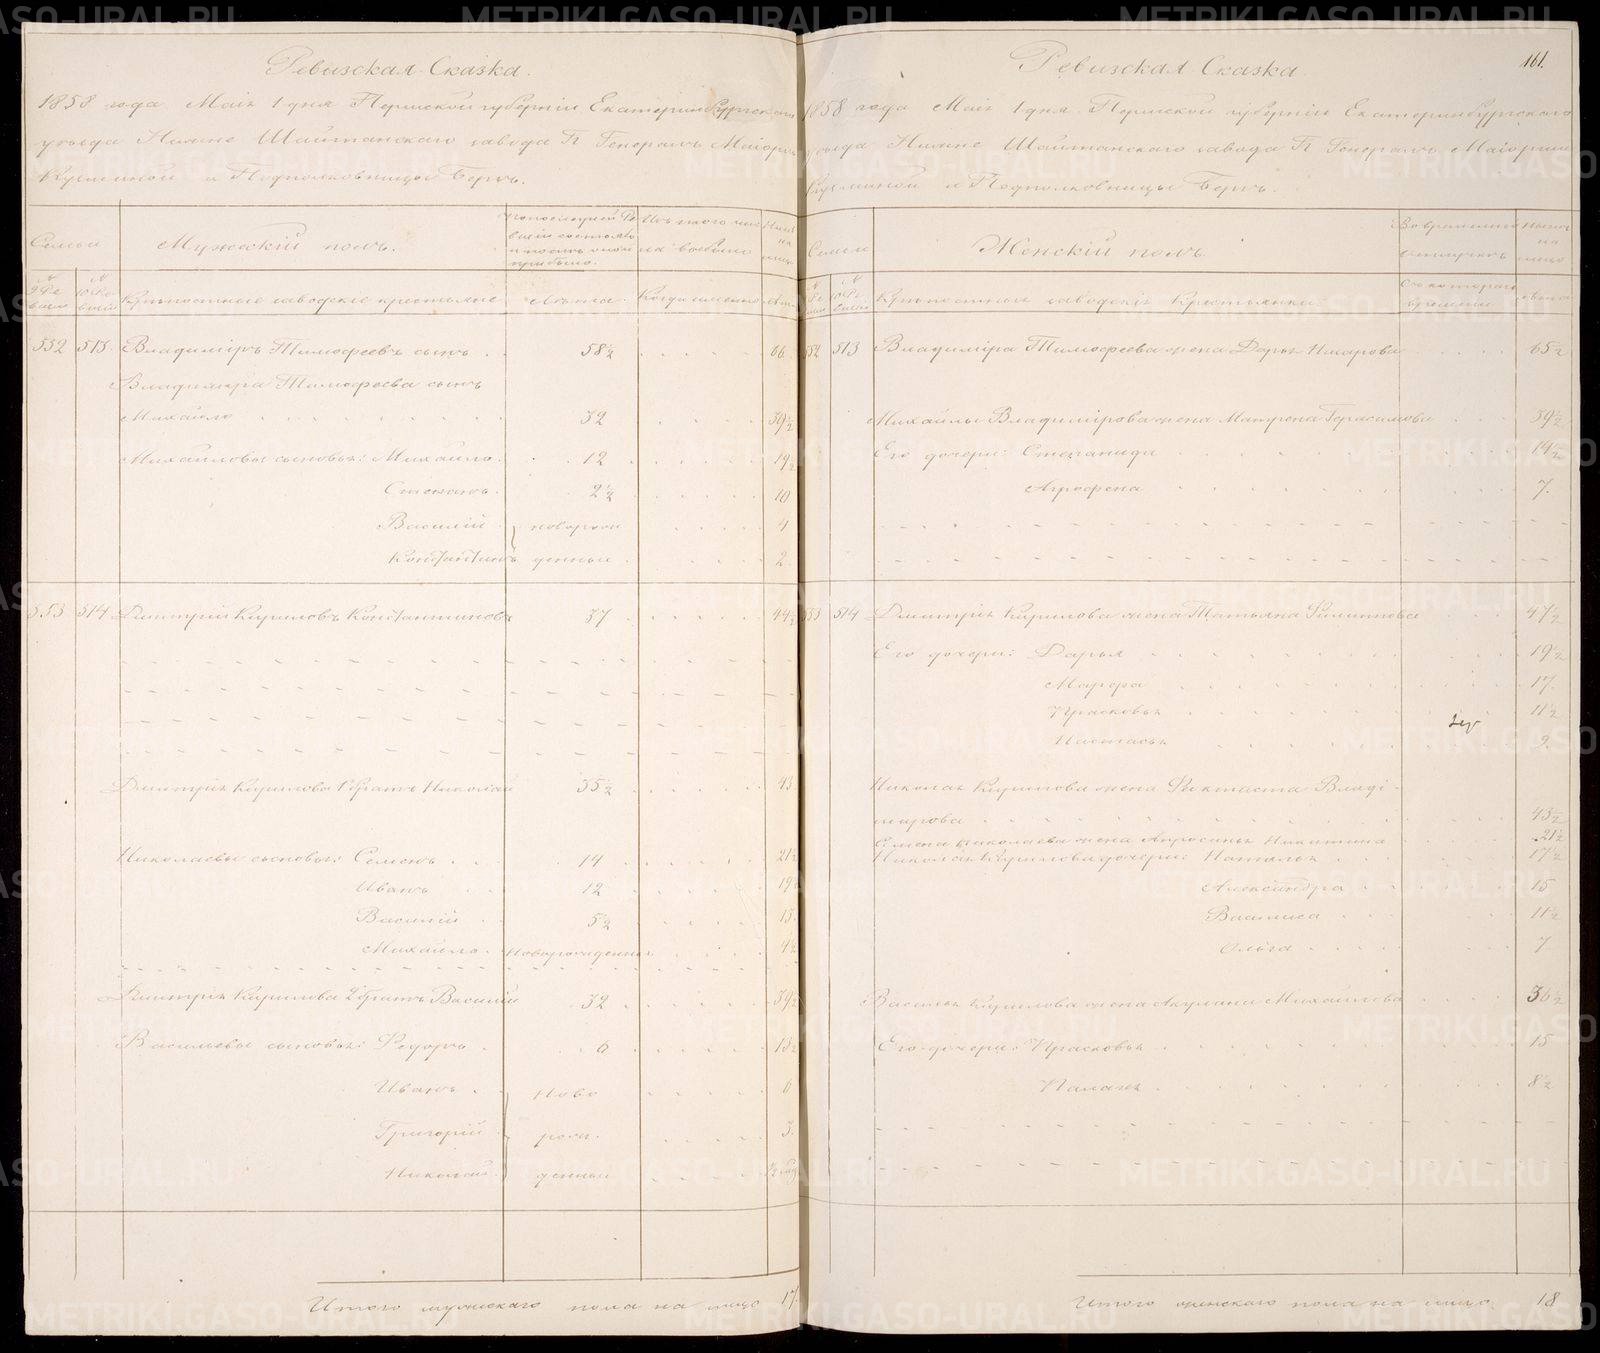 Ревизская Сказка.
1858 года Маія 1 дня Пермской губерніи Екатеринбургскаго
уезда Нижне Шайтанского завода Гг Генералъ Маіорши
Кузьминой и Подполковницы Бергъ.
Семьи
Мужескій полъ.
По последней Ре
визіи состояло
и после оной
прибыло.
Изъ того числа
выбыло
Ныне
на
лицо
№
9 Ре
визіи
№
10 Ре
визіи
Крепостные заводскіе крестьяне
Лета.
Когда именно
Лета
552 513. Владиміръ Тимофеевъ сынъ 58½ 66
Владиміра Тимофеева сынъ
Михайло 32 39½
Михайловы сыновья: Михайло 12 19½
Степанъ 2½ 10
Василій новорож 4
Константинъ денные 2
553 514 Дмитрій Кириловъ Константиновъ 37 44½
Дмитрія Кирилова 1 братъ Николай 35½ 43
Николаевы сыновья: Семенъ 14 21½
Иванъ 12 19½
Василій 5½ 13
Михайло Новорожденный 4½
Дмитрія Кирилова 2 братъ Василій 32 39½
Васильевы сыновья: Федоръ 6 13½
Иванъ Ново 6
Григорій рож 3
Николай денные
Итого мужескаго пола на лицо 17
161.
Ревизская Сказка
1858 года Маія 1 дня Пермской губерніи Екатеринбургскаго
уезда Нижне Шайтанского завода Гг Генералъ Маіорши
Кузьминой и Подполковницы Бергъ.
Семьи
Женскій полъ
Во временной
отлучке
Ныне
на
лицо
№
9 Ре
визіи
№
10 Ре
визіи
Крепостныя заводскія Крестьянки
Съ котораго
времени
Лета
552 513 Владиміра Тимофеева жена Дарья Макарова 65½
Михайлы Владимірова жена Матрена Герасимова 39½
Его дочери: Степанида 14½
Агрофена 7.
553 514 Дмитрія Кирилова жена Татьяна Филиппова 47½
Его дочери: Дарья 19½
Марфа 17
Прасковья 11½
Настасья 9
Николая Кирилова жена Фектиста Влади
мирова 43½
Семена Николаева жена Апросинья Никитина 21½
Николая Кирилова дочери: Наталья 17½
Александра 15
Васлиса 11½
Ольга 7
Василья Кирилова жена Акулина Михайлова 36½
Его дочери: Прасковья 15
Палагея 8½
Итого женскаго пола на лицо 18
METRIKI.GASO-URAL.RU